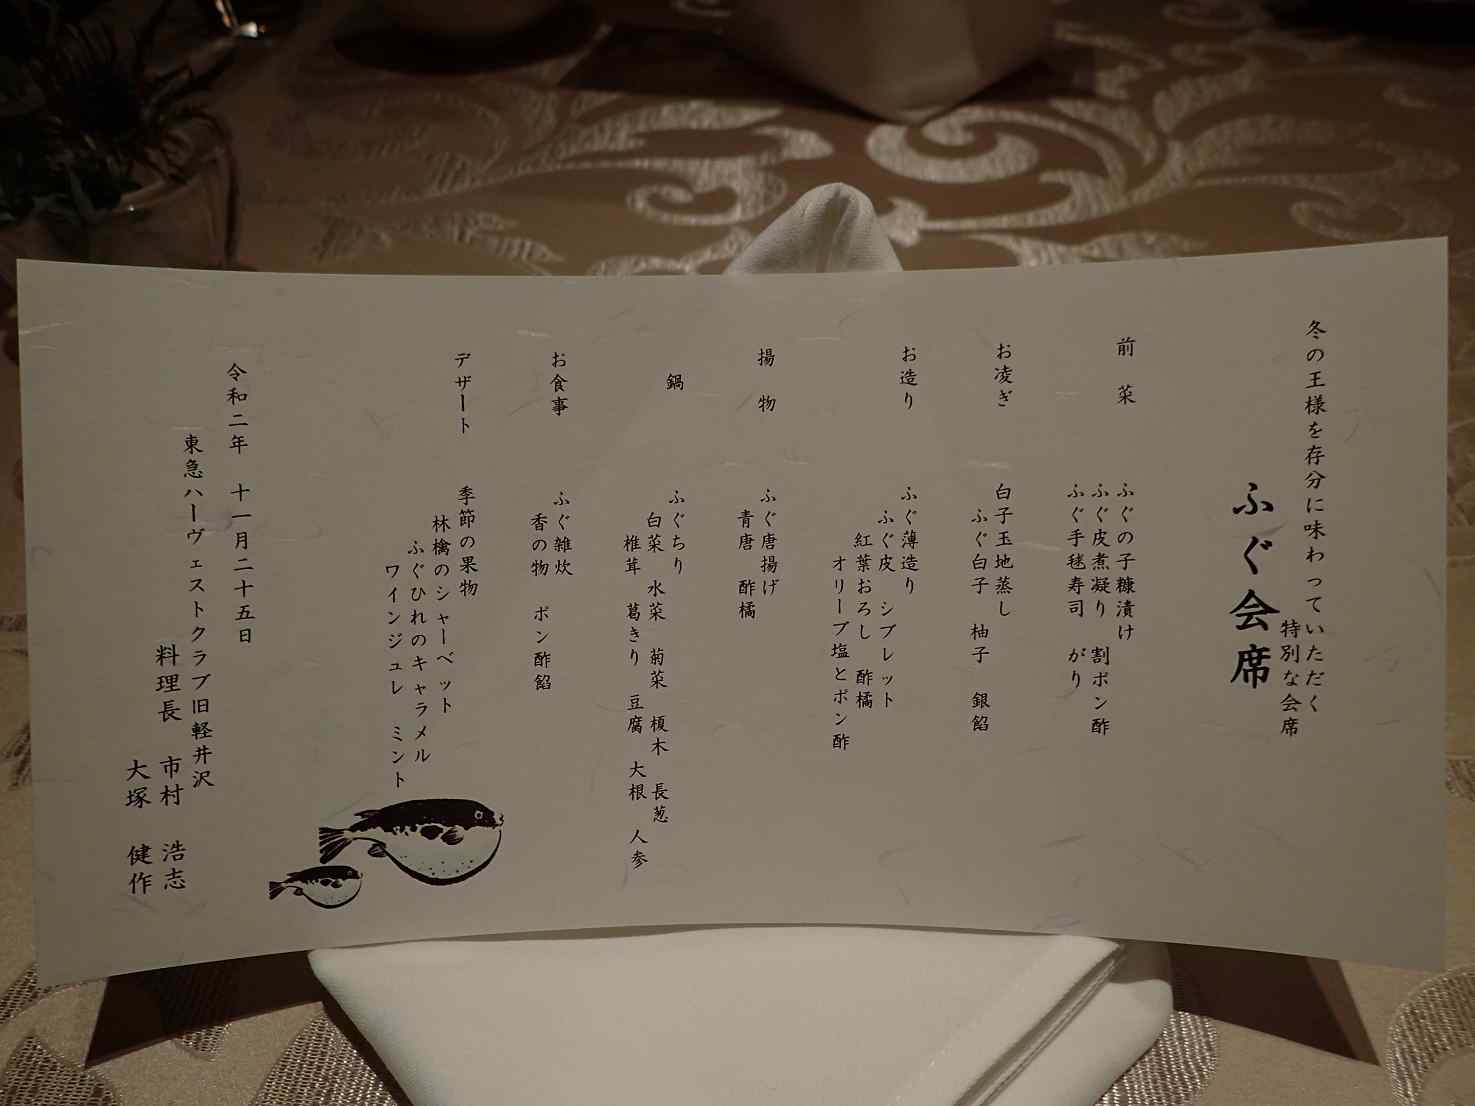 冬の王様を存分に味わっていただく
特別な会席
ふぐ会席
前菜
ふぐの子糠漬け
ふぐ皮煮凝り 割ポン酢
ふぐ手毬寿司 がり
お凌ぎ
白子玉地蒸し
ふぐ白子 柚子 銀餡
お造り
ふぐ薄造り
ふぐ皮 シブレット
紅葉おろし 酢橘
オリーブ塩とポン酢
揚物
ふぐ唐揚げ
青唐 酢橘
鍋
ふぐちり
白菜 水菜 菊菜 榎木 長葱
椎茸 葛きり 豆腐 大根 人参
お食事
ふぐ雑炊
香の物 ポン酢餡
デザート
季節の果物
林檎のシャーベット
ふぐひれのキャラメル
ワインジュレ ミント
令和二年 十一月二十五日
東急ハーヴェストクラブ旧軽井沢
料理長 市村 浩志
大塚 健作